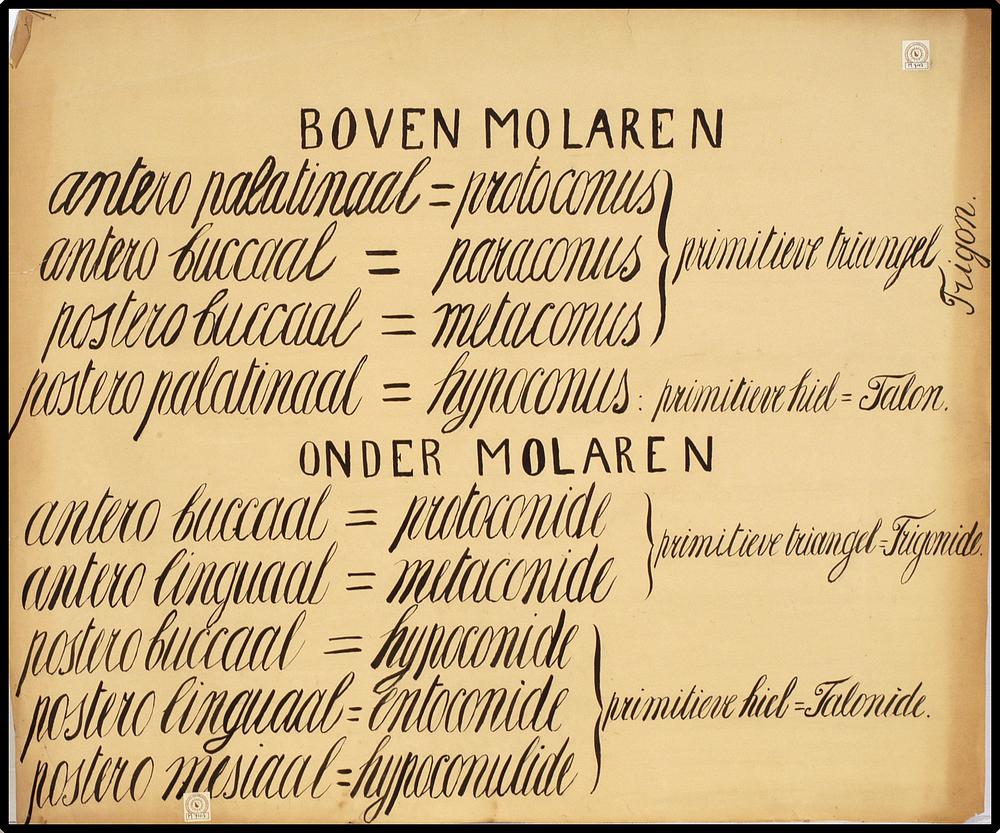 BOVEN MOLAREN
antero palatinaal = protoconus
antero buccaal = paraconus
postero buccaal = metaconus
primitieve triangel
Trigon.
postero palatinaal = hypoconus: primitieve hiel = Talon.
ONDER MOLAREN
antero buccaal = protoconide
antero linguaal = metaconide
primitieve triangel = Trigonide.
postero buccaal = hypoconide
postero linguaal = entoconide
postero mesiaal = hypoconulide
primitieve hiel = Talonide.